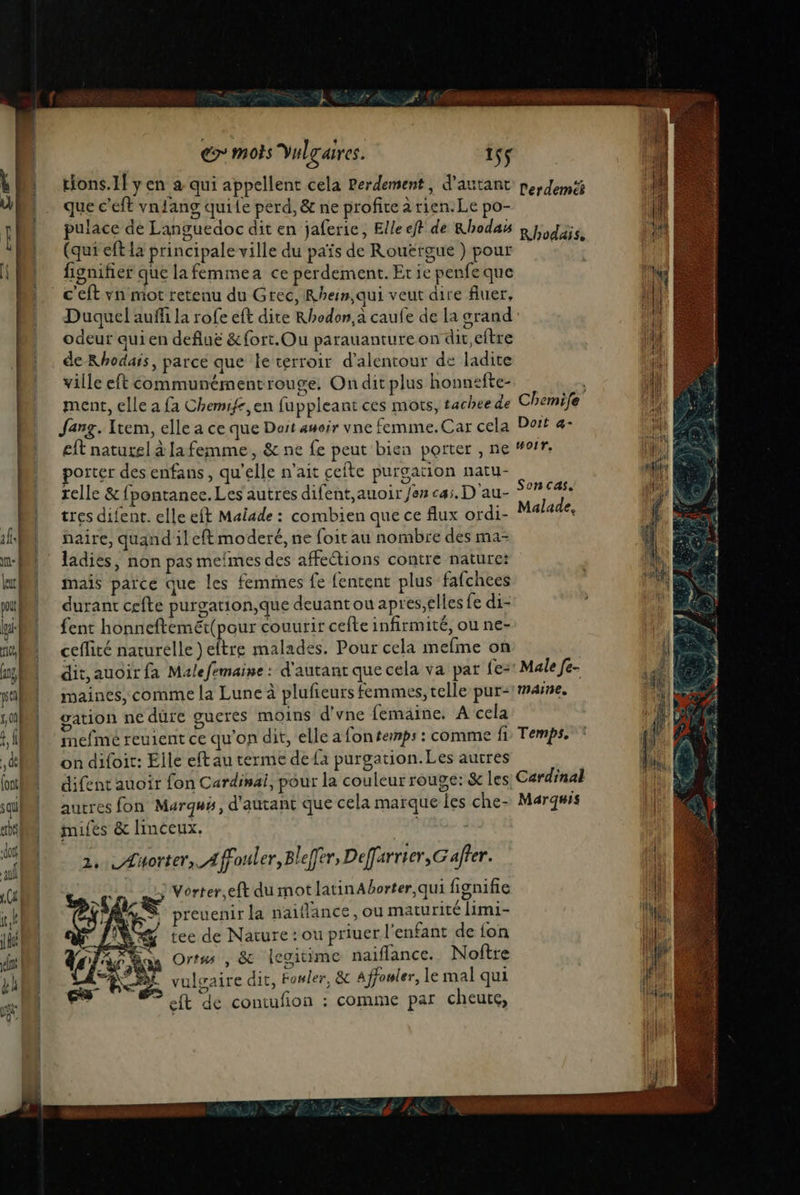 & mots vulgaires. 155
tions. Il y en a qui appellent cela Perdement, d'autant Perdemẽt
que c'eſt vn ſang qui ſe perd, & ne profite à rien. Le po-
pulace de Languedoc dit en jaſerie, Elle eſt de Rhodais Rhodais.
(qui eſt la principale ville du païs de Rouërgue) pour
ſignifier que la femme a ce perdement. Et ie penſe que
c'eſt vn mot retenu du Grec, Rhein, qui veut dire fluer.
Duquel auſſi la roſe eſt dite Rhodon, à cauſe de la grand
odeur qui en defluë & ſort. Ou parauanture on dit, eſtre
de Rhodais, parce que le terroir d'alentour de ladite
ville eſt communément rouge. On dit plus honneſte-
ment, elle a ſa Chemiſe, en ſuppleant ces mots, tachee de Chemiſe
ſang. Item, elle a ce que Doit auoir vne femme. Car cela Doit a-
eſt naturel à la femme, & ne ſe peut bien porter, ne uoir.
porter des enfans, qu'elle n'ait ceſte purgation natu-
relle & ſpontanee. Les autres diſent, auoir ſon cas. D'au- Son cas.
tres diſent. elle eſt Malade : combien que ce flux ordi- Malade.
naire, quand il eſt moderé, ne ſoit au nombre des ma-
ladies, non pas meſmes des affections contre nature:
mais parce que les femmes ſe ſentent plus faſchees
durant ceſte purgation, que deuant ou apres, elles ſe di-
ſent honneſtemẽt (pour couurir ceſte infirmité, ou ne-
ceſſité naturelle) eſtre malades. Pour cela meſme on
dit, auoir ſa Male ſemaine : d'autant que cela va par ſe- Male ſe-
maines, comme la Lune à pluſieurs femmes, telle pur- maine.
gation ne dure gueres moins d'vne ſemaine. A cela
meſme reuient ce qu'on dit, elle a ſon temps : comme ſi Temps.
on diſoit: Elle eſt au terme de ſa purgation. Les autres
diſent auoir ſon Cardinal, pour la couleur rouge: & les Cardinal
autres ſon Marquis, d'autant que cela marque les che- Marquis
miſes & linceux.
2. Auorter, Affouler, Bleſſer, Deſſarrier, Gaſter.
Vorter, eſt du mot latin Aborter, qui ſignifie
preuenir la naiſſance, ou maturité limi-
tee de Nature : ou priuer l'enfant de ſon
Ortus, & legitime naiſſance. Noſtre
vulgaire dit, Fouler, & Affouler, le mal qui
eſt de contuſion : comme par cheute,